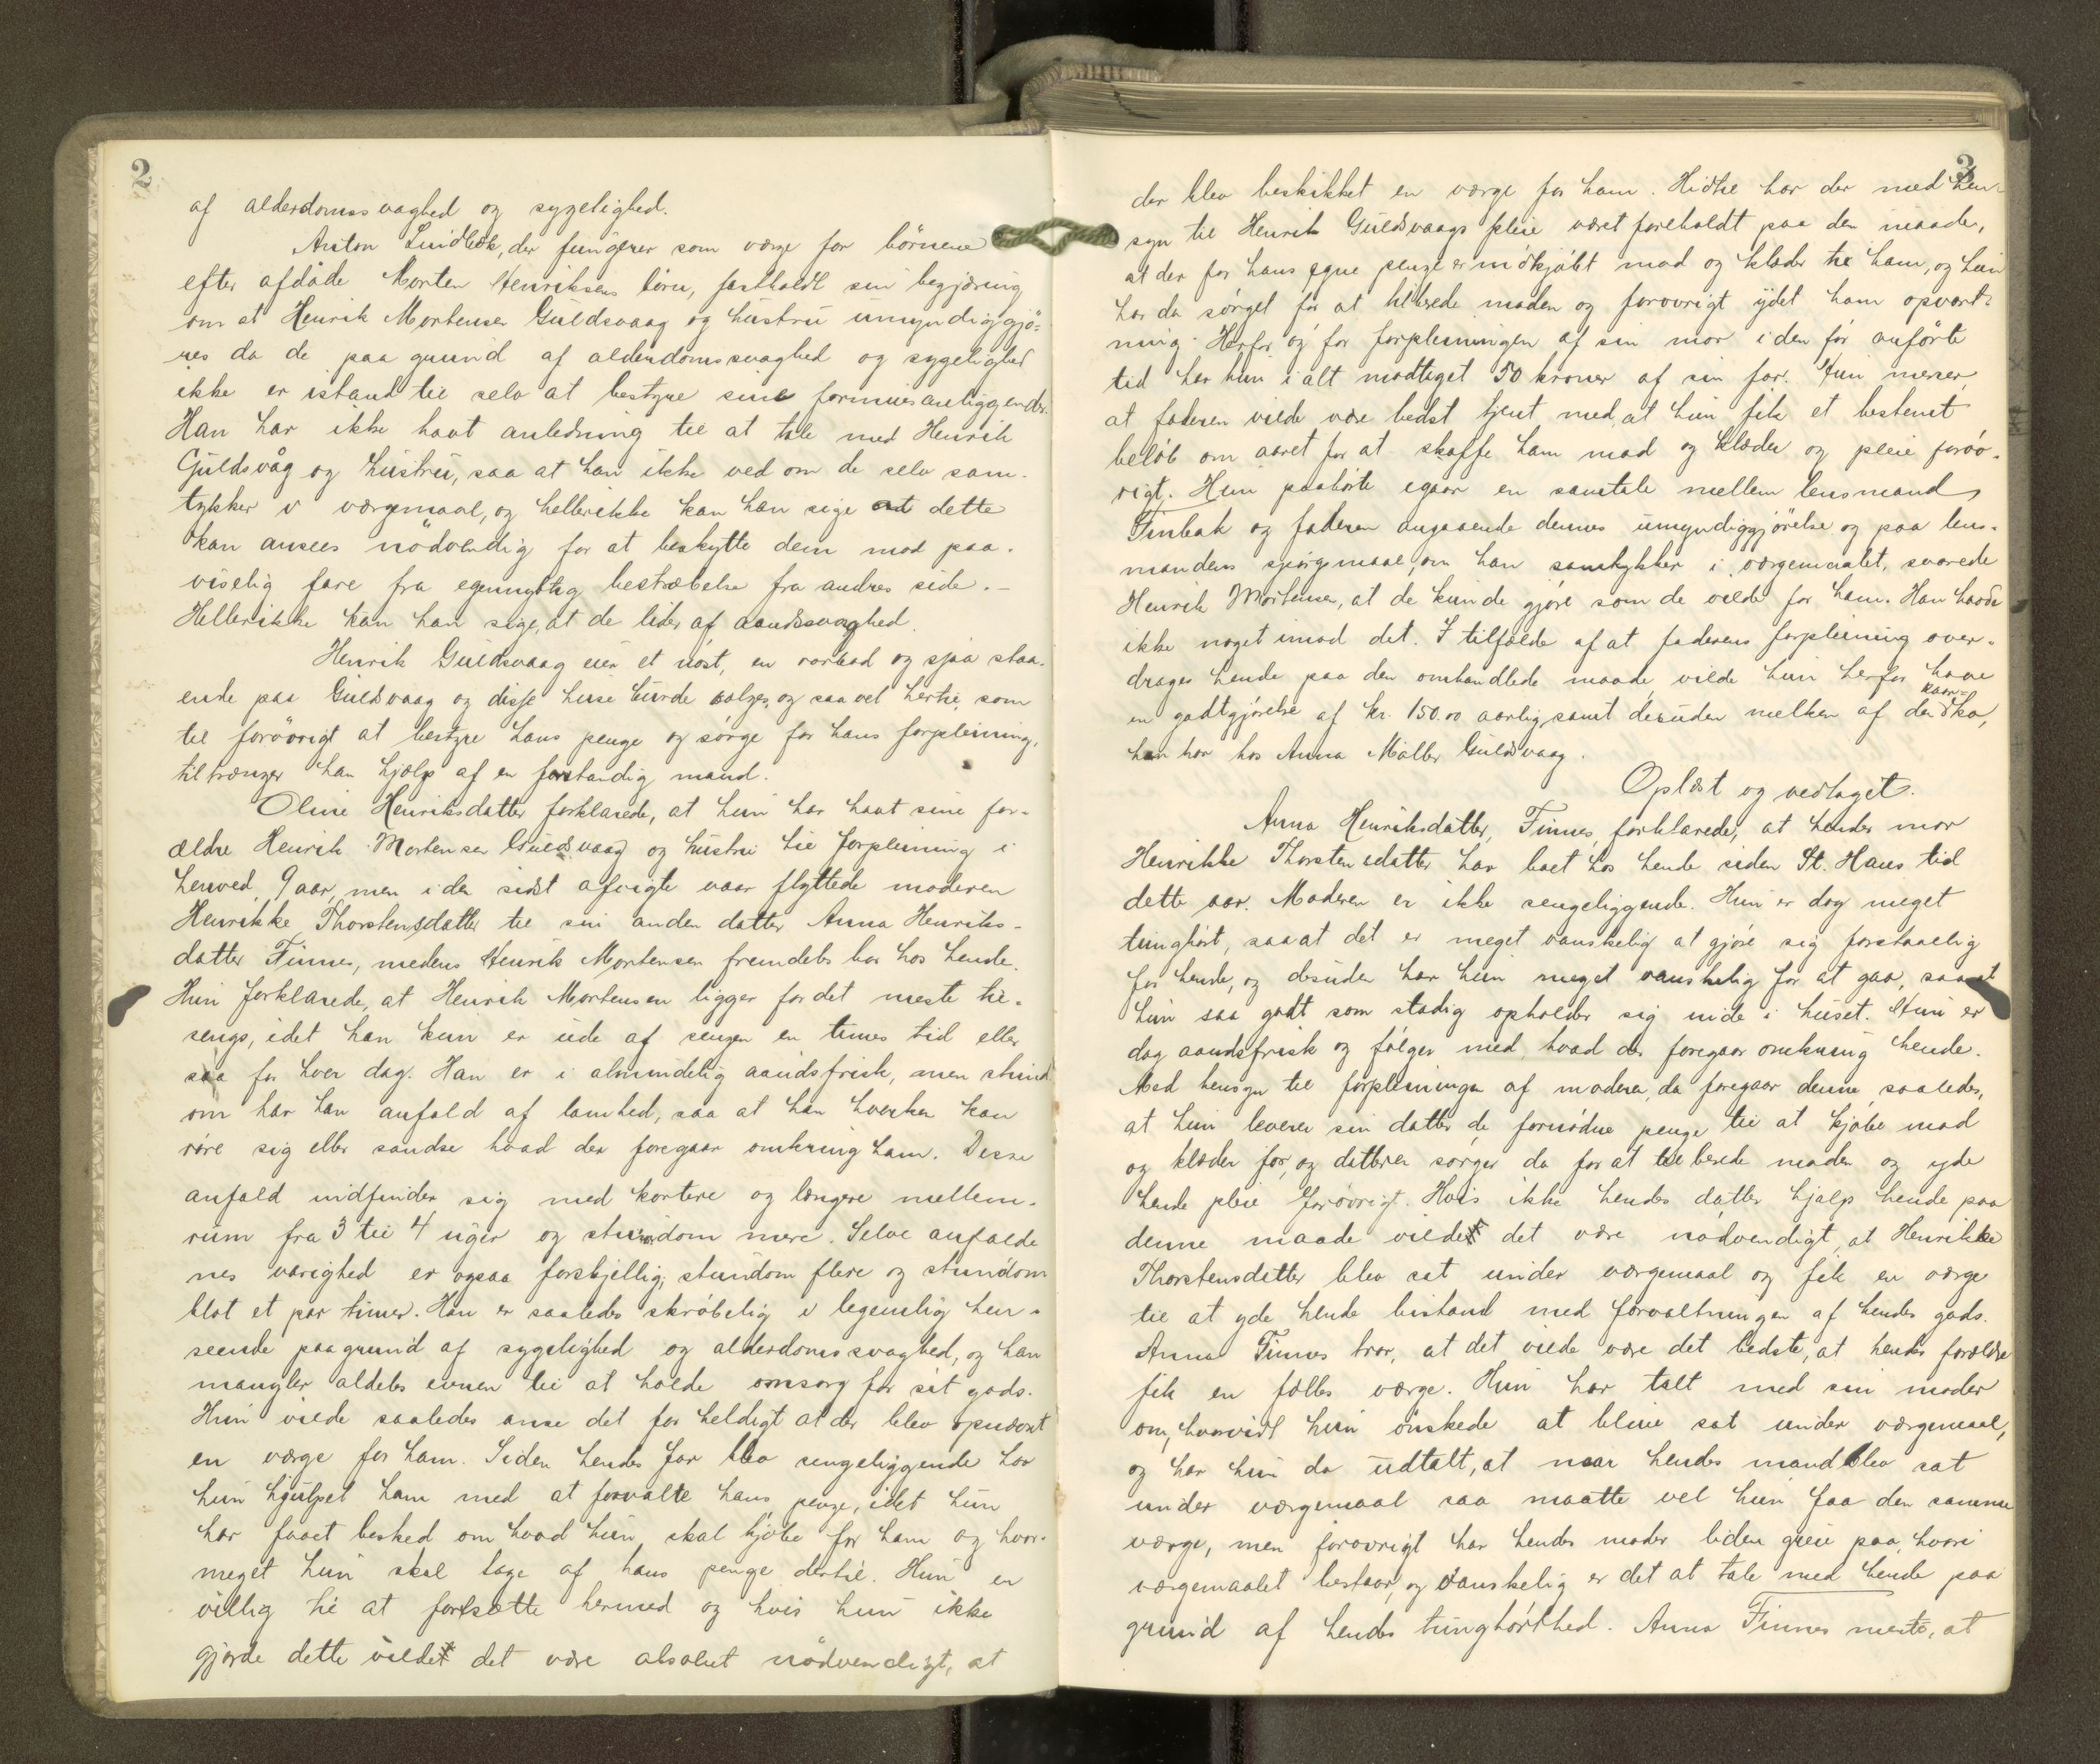 2
af alderdomssvaghed og sygelighed.
Anton Lindbæk, der fungerer som værge for börnene
efter afdöde Morten Henriksens börn, fastholdt sin begjæring
om at Henrik Mortensen Guldsvaag og hustru umyndiggjö-
res da de paa grund af alderdomssvaghed og sygelighed
ikke er istand til selv at bestyre sine formuesanliggender.
Han har ikke havt anledning til at tale med Henrik
Guldsvåg og hustru, saa at han ikke ved om de selv sam-
tykker i værgemaal, og hellerikke kan han sige at dette
kan ansees nödvendig for at beskytte dem mod paa-
viselig fare fra egennyttig bestræbelse fra andres side. -
Hellerikke kan han sige, at de lider af aandssvaghed.
Henrik Guldsvaag eier et nöst, en rorbod og sjaa staa-
ende paa Guldsvaag og disse huse burde sælges, og saavel hertil, som
til forövrigt at bestyre hans penge og sörge for hans forpleining,
tiltrænger han hjælp af en forstandig mand.
Oline Henriksdatter forklarede, at hun har havt sine for-
ældre Henrik Mortensen Guldsvaag og hustru til forpleining i
henved 9 aar, men i den sidst afvigte vaar flyttede moderen
Henrikke Thorstensdatter til sin anden datter Anna Henriks-
datter Finnes, medens Henrik Mortensen fremdeles bor hos hende.
Hun forklarede, at Henrik Mortensen ligger for det meste til-
sengs, idet han kun er ude af sengen en times tid eller
saa for hver dag. Han er i almindelig aandsfrisk, men stund-
om har han anfald af lamhed, saa at han hverken kan
röre sig eller sandse hvad der foregaar omkring ham. Disse
anfald indfinder sig med kortere og længere mellem-
rum fra 3 til 4 uger og stundom mere. Selve anfalde
nes varighed er ogsaa forskjellig, stundom flere og stundom
blot et par timer. Han er saaledes skröbelig i legemlig hen-
seende paa grund af sygelighed og alderdomssvaghed, og han
mangler aldeles evnen til at holde omsorg for sit gods.
Hun vilde saaledes anse det for heldigt at der blev opnævnt
en værge for ham. Siden hendes far blev sengeliggende har
hun hjulpet ham med at forvalte hans penge, idet hun
har faaet besked om hvad hun skal kjöbe for ham og hvor-
meget hun skal tage af hans penge dertil. Hun er
villig til at fortsætte hermed og hvis hun ikke
gjorde dette vilde det være absolut nödvendigt, at
3
der blev beskikket en værge for ham. Hidtil har der med hen-
syn til Henrik Guldsvaags pleie været forholdt paa den maade,
at der for hans egne penge er indkjöbt mad og klæder til ham, og hun
har da sörget for at tilberede maden og forövrigt ydet ham opvart-
ning. Herfor og for forpleiningen af sin mor i den för anförte
tid har hun ialt modtaget 50 kroner af sin far. Hun mener,
at faderen vilde være bedst tjent med, at hun fik et bestemt
belöb om aaret for at skaffe ham mad og klæder og pleie foröv-
rigt. Hun paahörte igaar en samtale mellem lensmand
Finbak og faderen angaaende dennes umyndiggjörelse og paa lens-
mandens spörgsmaal, om han samtykker i værgemaalet, svarede
Henrik Mortensen, at de kunde gjöre som de vilde for ham. Han havde
ikke noget imod det. I tilfælde af at faderens forpleining over-
drages hende paa den omhandlede maade, vilde hun herfor have
en godtgjörelse af kr. 150.00 aarlig samt desuden melken af den kaar-ko,
han har hos Anna Möller Guldsvaag.
Oplæst og vedtaget.
Anna Henriksdatter, Finnes, forklarede, at hendes mor
Henrikke Thorstensdatter har boet hos hende siden St. Hans tid
dette aar. Moderen er ikke sengeliggende. Hun er dog meget
tunghört, saa at det er meget vanskelig at gjöre sig forstaaelig
for hende, og desuden har hun meget vanskelig for at gaa, saa at
hun saa godt som stadig opholder sig inde i huset. Hun er
dog aandsfrisk og fölger med hvad der foregaar omkring hende.
Med hensyn til forpleiningen af moderen, da foregaar denne saaledes,
at hun leverer sin datter de fornödne penge til at kjöbe mad
og klæder for, og datteren sörger da for at tilberede maden og yde
hende pleie forövrigt. Hvis ikke hendes datter hjalp hende paa
denne maade vilde det være nödvendigt, at Henrikke
Thorstensdatter blev sat under værgemaal og fik en værge
til at yde hende bistand med forvaltningen af hendes gods.
Anna Finnes tror, at det vilde være det bedste, at hendes forældre
fik en fælles værge. Hun har talt med sin moder
om, hvorvidt hun önskede at blive sat under værgemaal,
og har hun da udtalt, at naar hendes mand blev sat
under værgemaal saa maatte vel hun faa den samme
værge, men forövrigt har hendes moder liden greie paa, hvori
værgemaalet bestaar, og vanskelig er det at tale med hende paa
grund af hendes tunghörthed. Anna Finnes mente, at